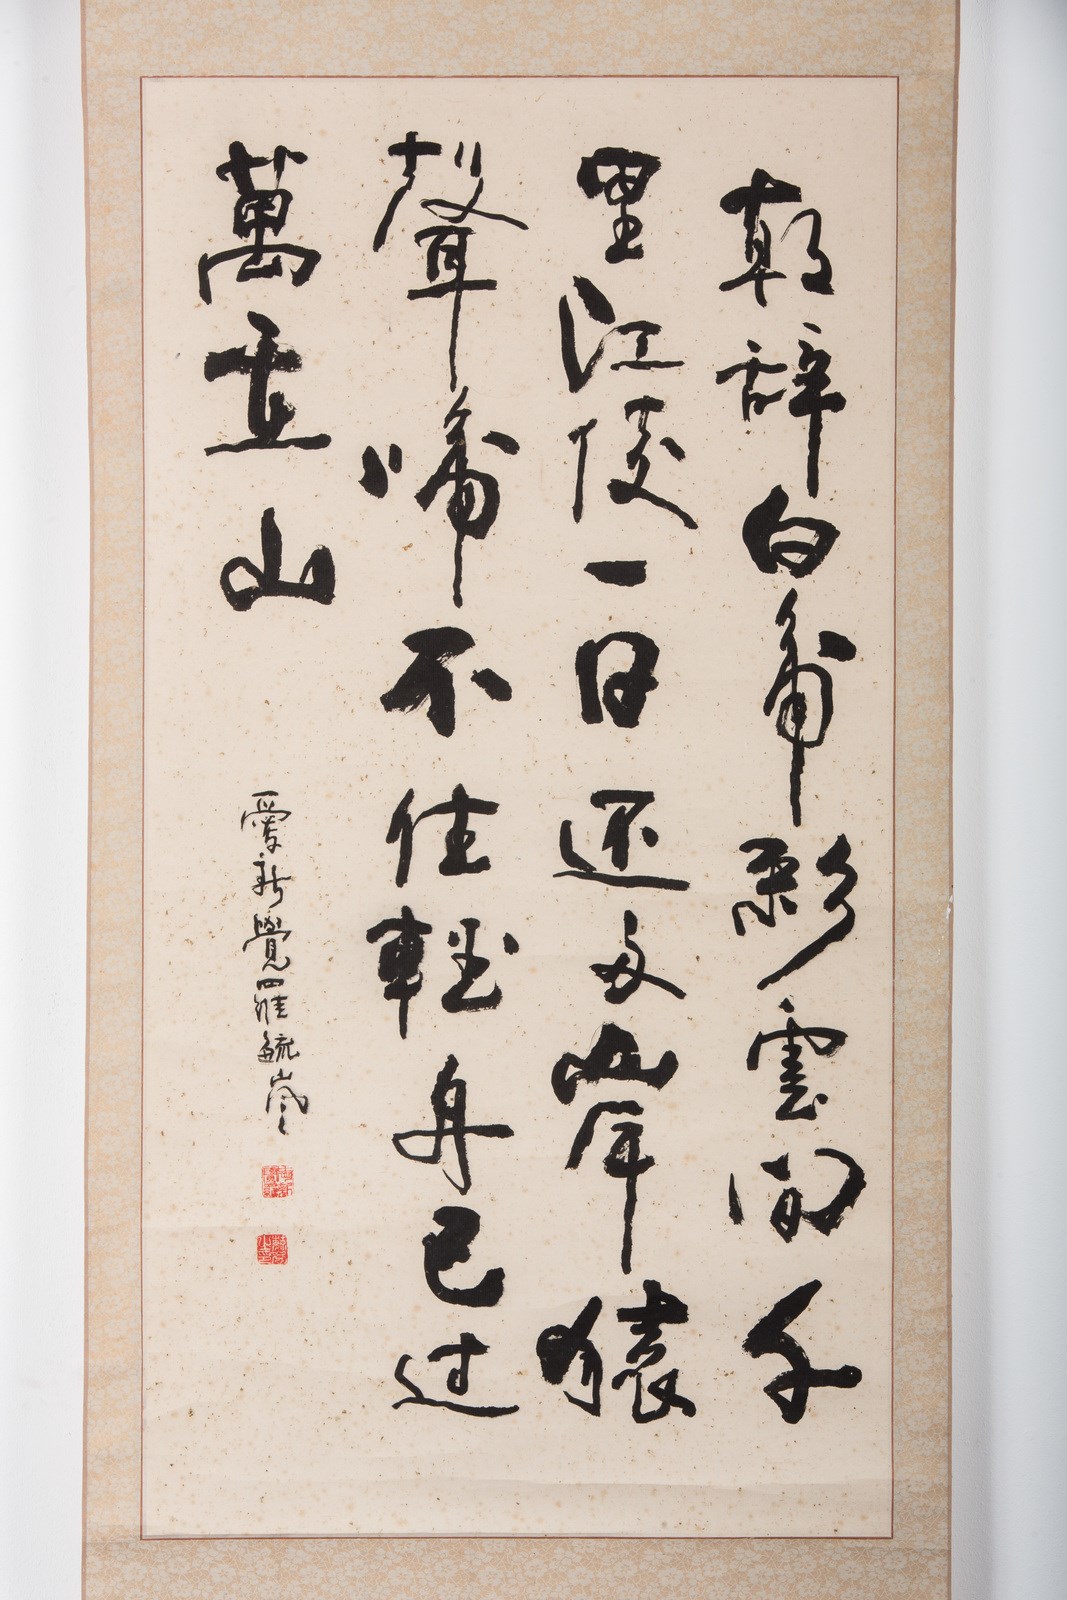 朝辭白帝彩雲間千
里江陵一日還兩岸猿
聲啼不住輕舟已過
萬重山
愛新覺羅毓嵐